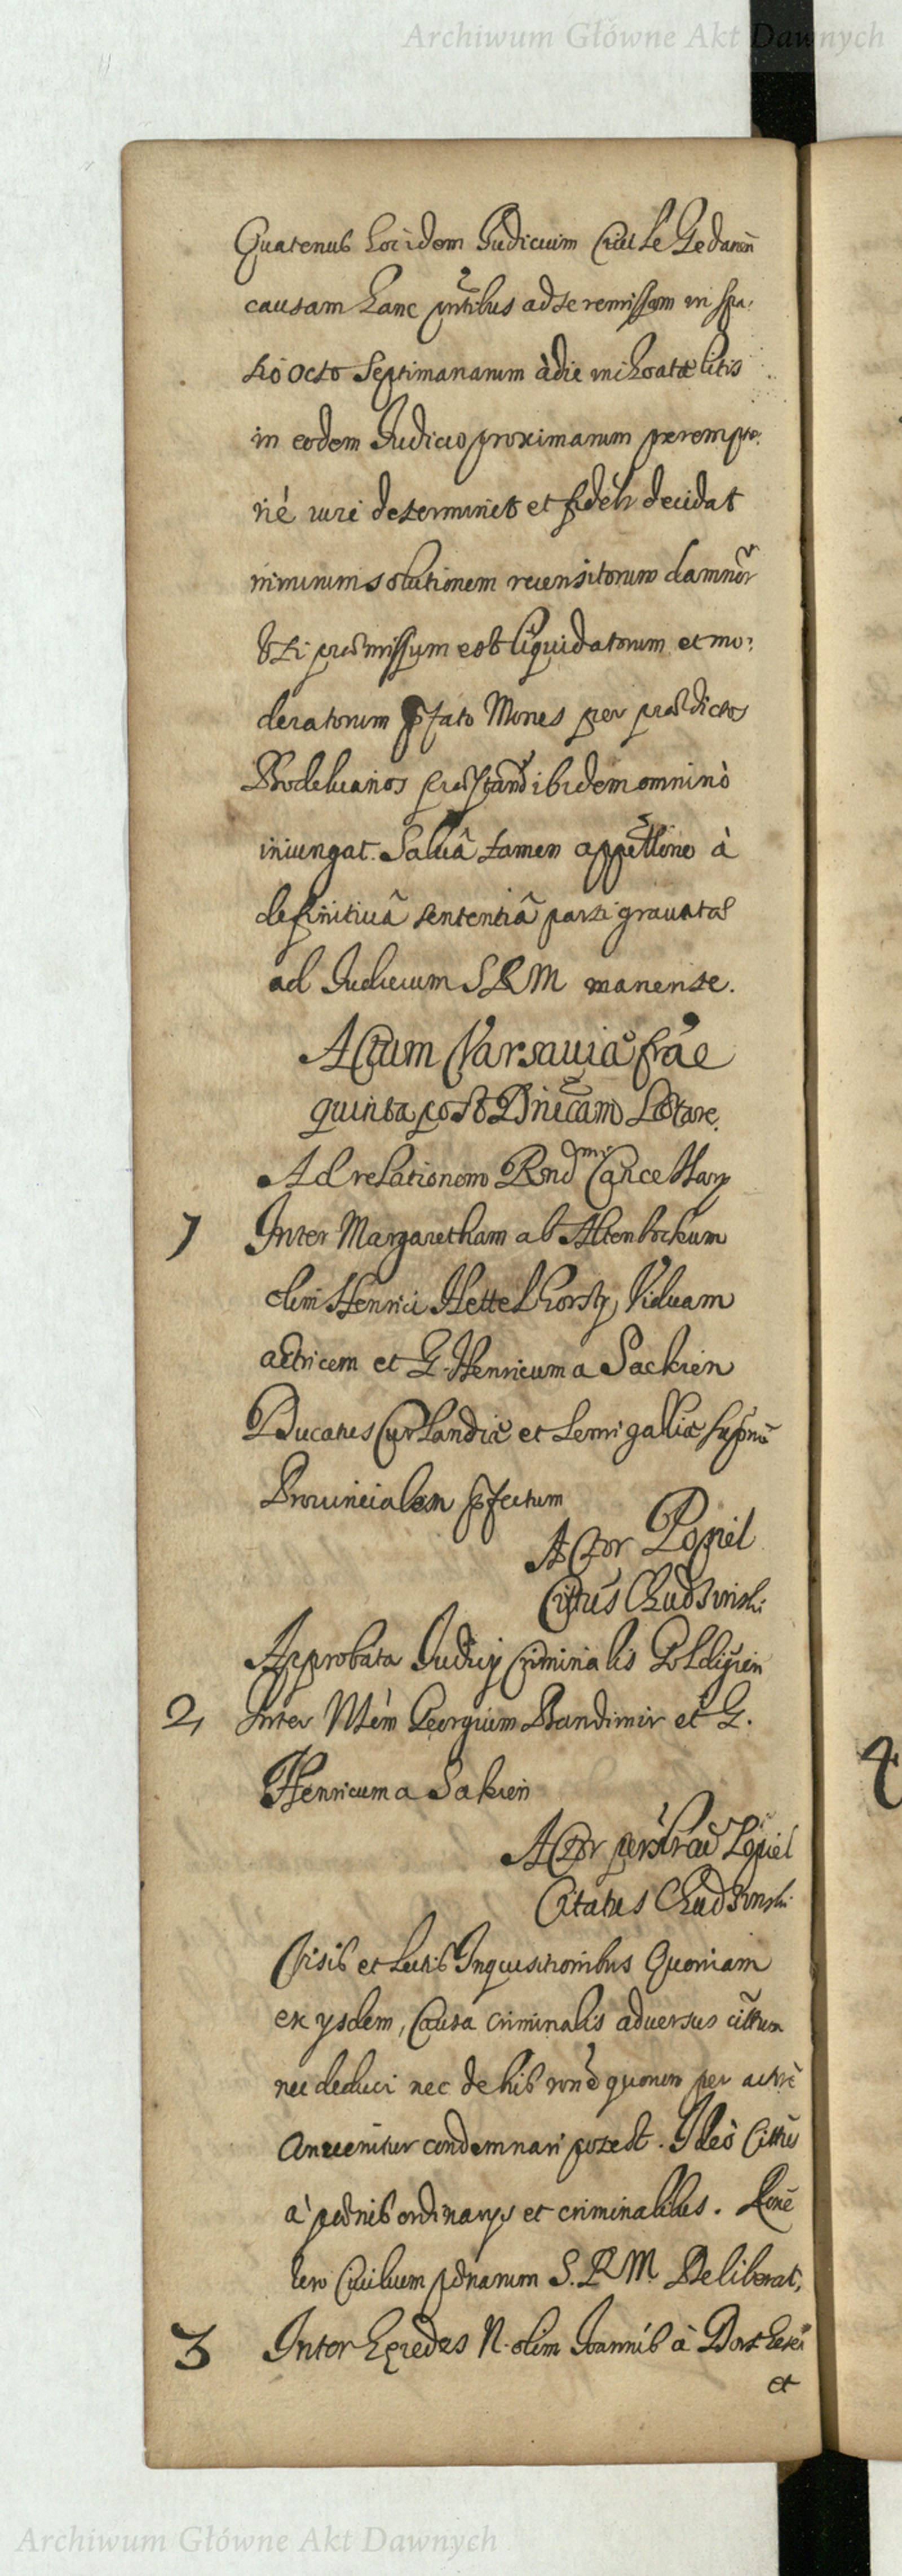 Archiwum Główne Akt Dawnych
Quatenus loci idem Judicium Civile Gedanen
causam hanc pntibus ad se remissam in spa:
tio octo Septimanarum à die inchoatæ litis
in eodem Judicio proximarum perempto:
riè iure determinet et decidat
nimirum solutionem recensitorum damnor
uti præmissum est liquidatorum et mo:
deratorum pfato Mones per prædictos
præstand ibidem omninò
iniungat. Salvâ tamen appellone à
definitivâ sententiâ parti gravatæ
ad Judicium S R M manente.
Actum Varsaviæ fræ
quinta post Dnicam Lætare.
Ad relationem Rnd mi Cancellarij
1 Inter Margaretham ab Altenbockum
olim Henrici Hettelhorst, Viduam
actricem et G. Henricum a Sackien
Ducatus Curlandiæ et Semigalliæ supm
Provincialem pfectum
Actor Popiel
Cittus Chudzinski
Approbata Judicij Criminalis Goldigien
2, Inter Georgium Bandimir et G.
Henricum a Sakien
Actor Popiel
Citatus Chudzinski
Visis et lectis Inquisitionibus Quoniam
ex ysdem, Causa criminalis adversus cittum
nec deduci nec de his quorum per actore
convenitur condemnari potest. Ideò Cittus
à pœnis ordinarijs et criminalibus. Rone
vero Civilium pœnarum S. R M. Deliberat,
3 Inter hæredes N. olim Joannis à
et
Archiwum Główne Akt Dawnych